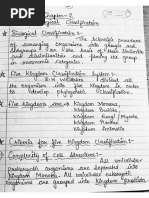 Chapter - 2
Biological Classification
★ Biological Classification :-
The Scientific procedure
of arranging organisms into groups and
subgroups on the basis of their similarities
and dissimilarities and placing the group
is called Biological Classification.
★ Five Kingdom Classification System :-
R.H. Whittaker
the organism into five Kingdom in order
Phylogenetic Classification.
★ Five Kingdoms are :- Kingdom Monera,
Kingdom Protista,
Kingdom Fungi / Mycota
Kingdom Plantae
Kingdom Animalia
★ Criteria for five Kingdom Classification :-
Complexity of Cell Structure :-
All unicellular
Prokaryotic organisms are separated into
Kingdom Monera. All unicellular eukaryotic
organism are grouped into Kingdom Protista.